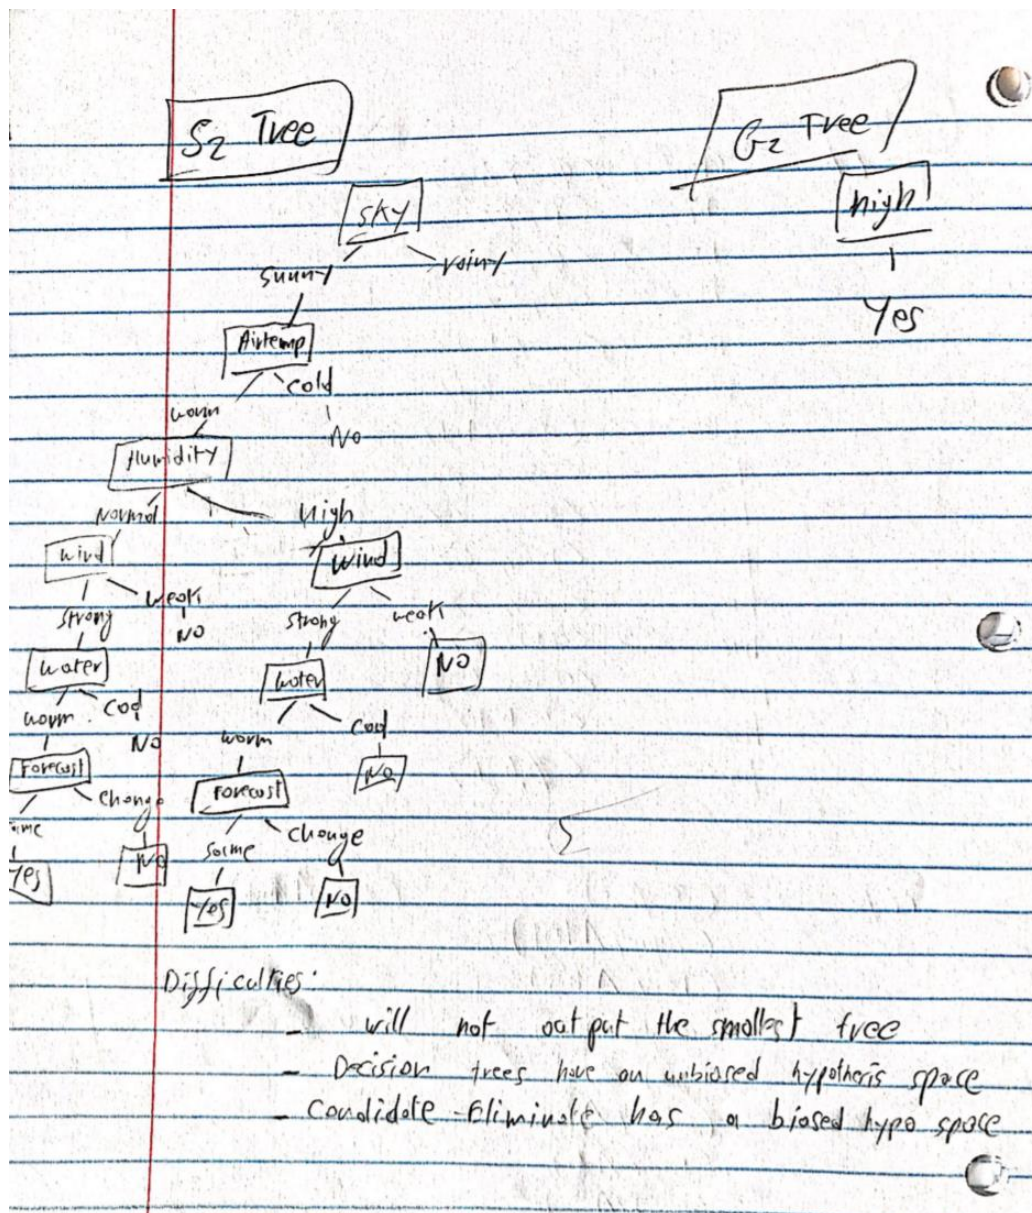 S2 Tree
G2 Tree
Sky
high
sunny rainy
Yes
Airtemp
warm cold
No
Humidity
Normal high
Wind Wind
strong weak strong weak
No No
Water Water
warm Cool warm Cool
No No
Forecast Forecast
same change same change
Yes No Yes No
Difficulties:
- will not output the smallest tree
- Decision trees have an unbiased hypothesis space
- Candidate-Eliminate has a biased hypo space